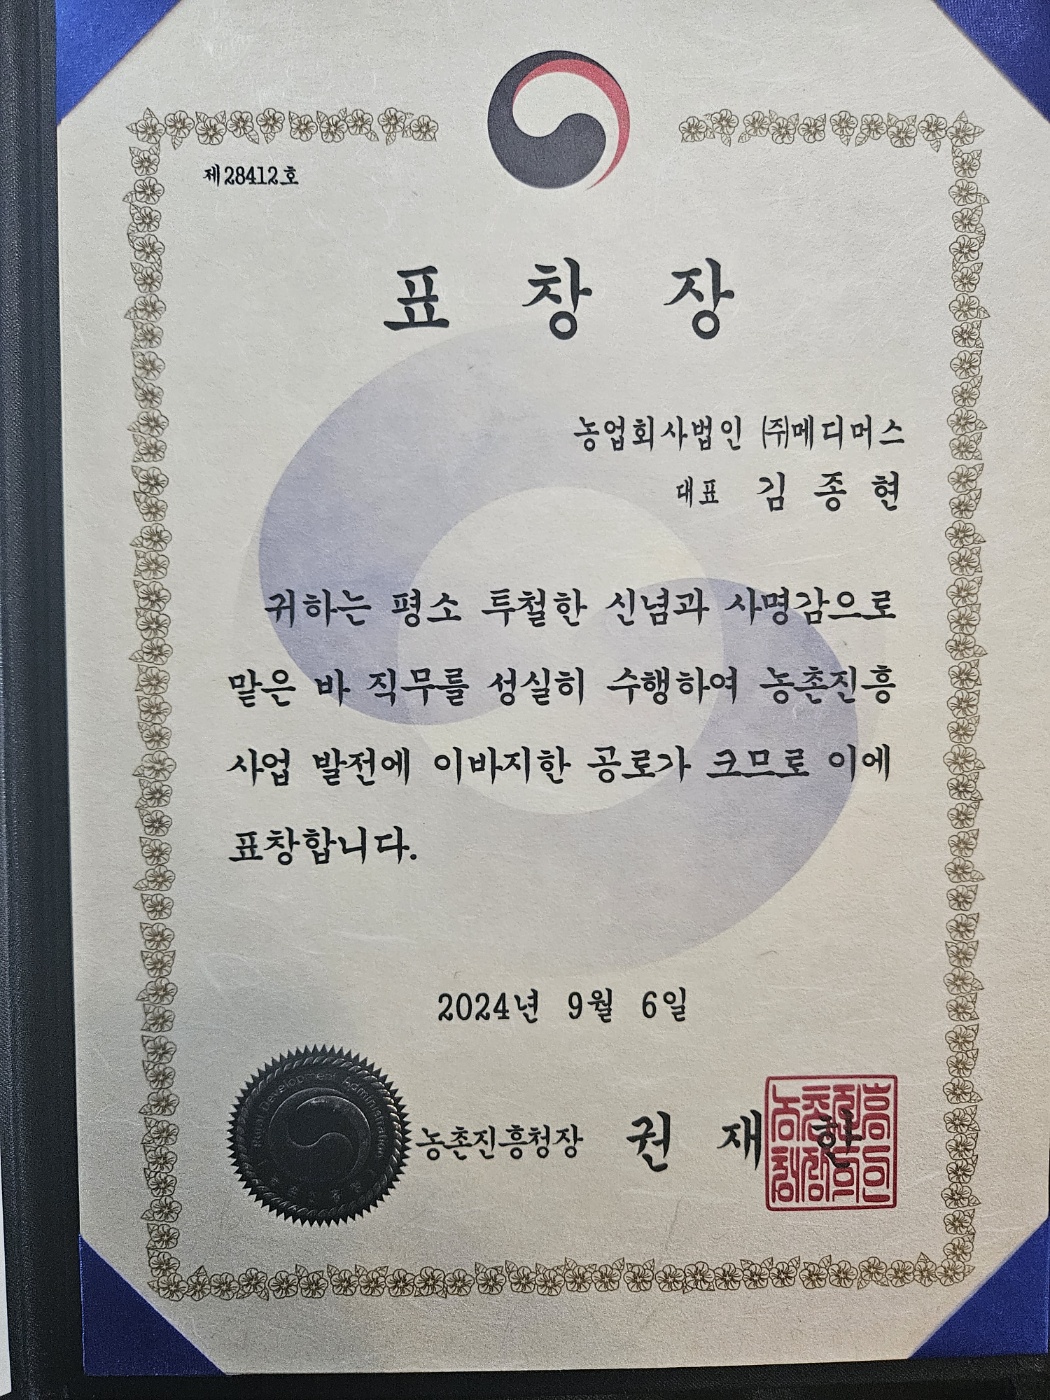 제28412호
표 창 장
농업회사법인 ㈜메디머스
대표 김 종 현
귀하는 평소 투철한 신념과 사명감으로
맡은 바 직무를 성실히 수행하여 농촌진흥
사업 발전에 이바지한 공로가 크므로 이에
표창합니다.
2024년 9월 6일
Rural Development Administration
농촌진흥청장 권 재 한